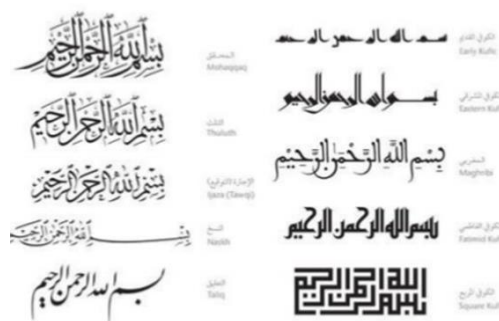 بسم الله الرحمن الرحيم
المحقق
Mohaqqaq
بسم الله الرحمن الرحيم
الثلث
Thuluth
بِسْمِ اللَّهِ الرَّحْمَنِ الرَّحِيمِ
الإجازة (التوقيع)
Ijaza (Tawqi)
بسم الله الرحمن الرحيم
النسخ
Naskh
بسم الله الرحمن الرحيم
التعليق
Taliq
بسم الله الرحمن الرحيم
الكوفي القديم
Early Kufic
بسم الله الرحمن الرحيم
الكوفي المشرقي
Eastern Kufi
بِسْمِ اللَّهِ الرَّحْمَنِ الرَّحِيمِ
المغربي
Maghribi
بسم الله الرحمن الرحيم
الكوفي الفاطمي
Fatimid Kuf
بسم الله الرحمن الرحيم
الكوفي المربع
Square Kuf